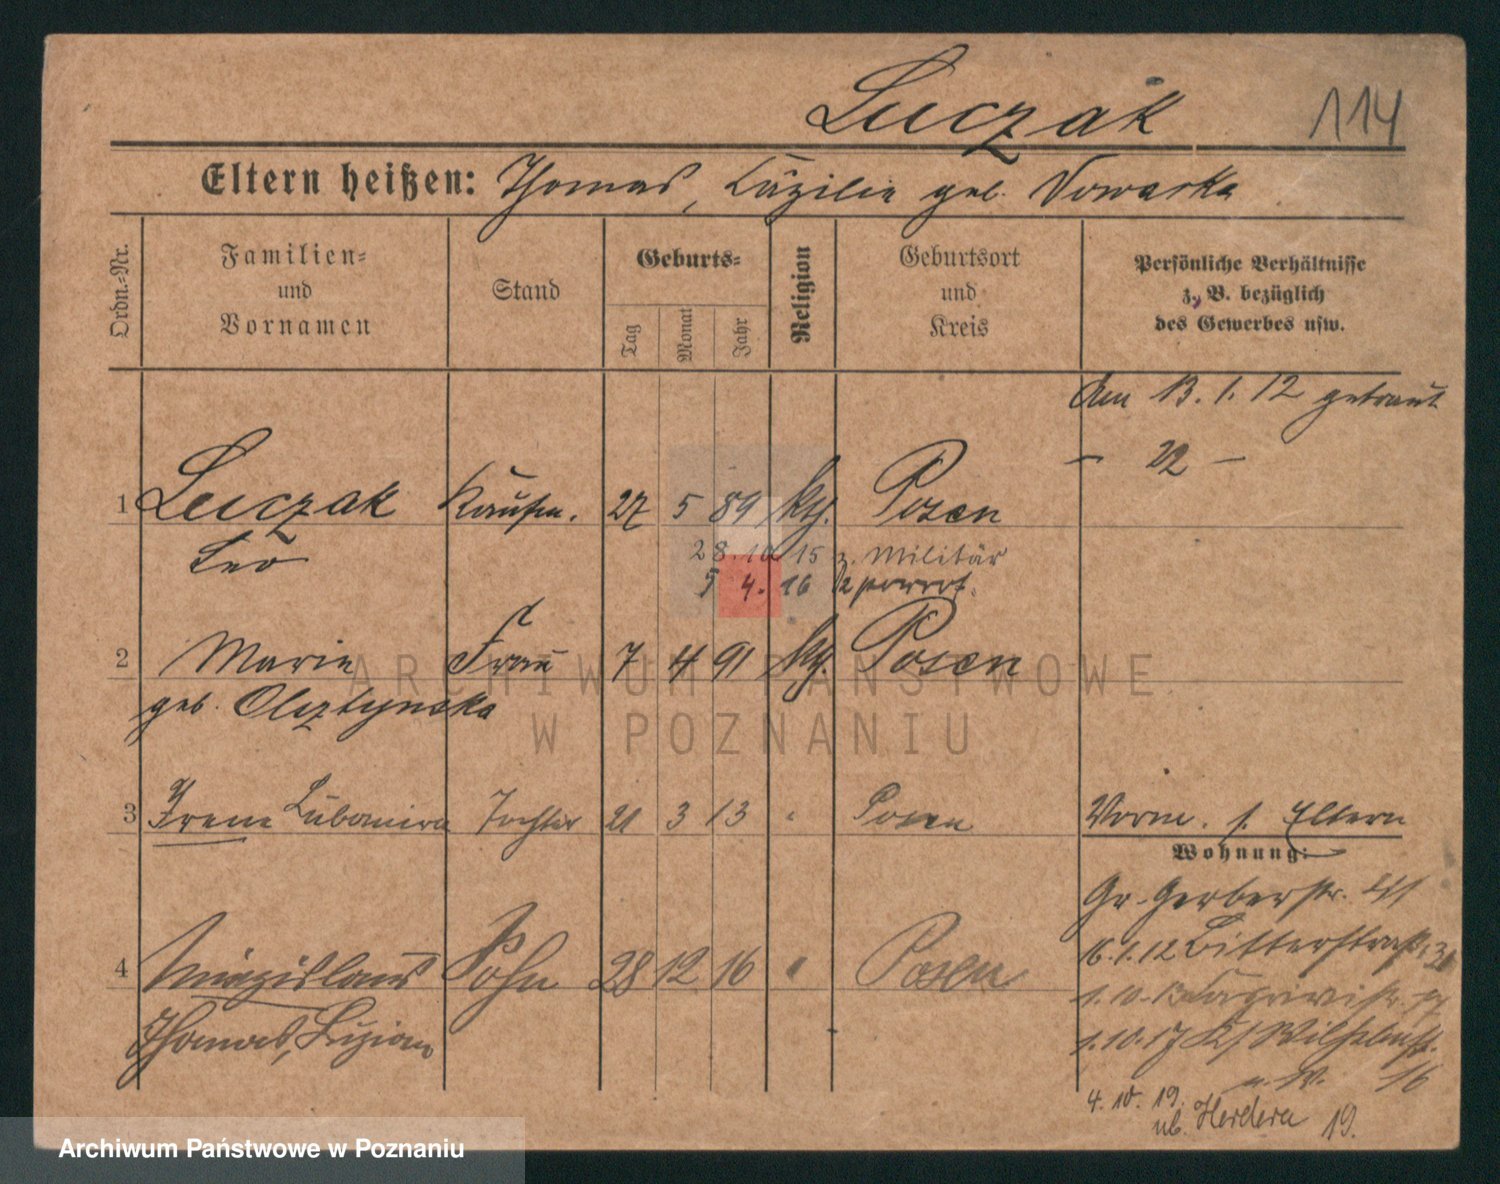 Luczak 114
Eltern heißen: Thomas, Cäzilie geb. Nowacka
Ordn.-Nr.
Familien- und Vornamen
Stand
Geburts-
Tag
Monat
Jahr
Religion
Geburtsort und Kreis
Persönliche Verhältnisse
z. B. bezüglich
des Gewerbes usw.
Am 13. 1. 12 getraut
— 22 —
1 Luczak Kaufm. 27 5 89 kth. Posen
Leo
28. 10 15 z. Militär
5 4. 16
2 Marie Frau 7 4 91 kth. Posen
geb. Olsztynska
3 Irene Lubomira Tochter 21 3 13 " Posen Vorm. s. Eltern
Wohnung:
Gr. Gerberstr.
4 Miezislaus Sohn 28 12 16 " Posen
Thomas, Luzian
16. 1. 12 Bitterstraße 31
1. 10. 13
1. 10. 17 Wilhelmstr.
16
4. 10. 19.
ul. Herdera 19.
ARCHIWUM PAŃSTWOWE
W POZNANIU
Archiwum Państwowe w Poznaniu